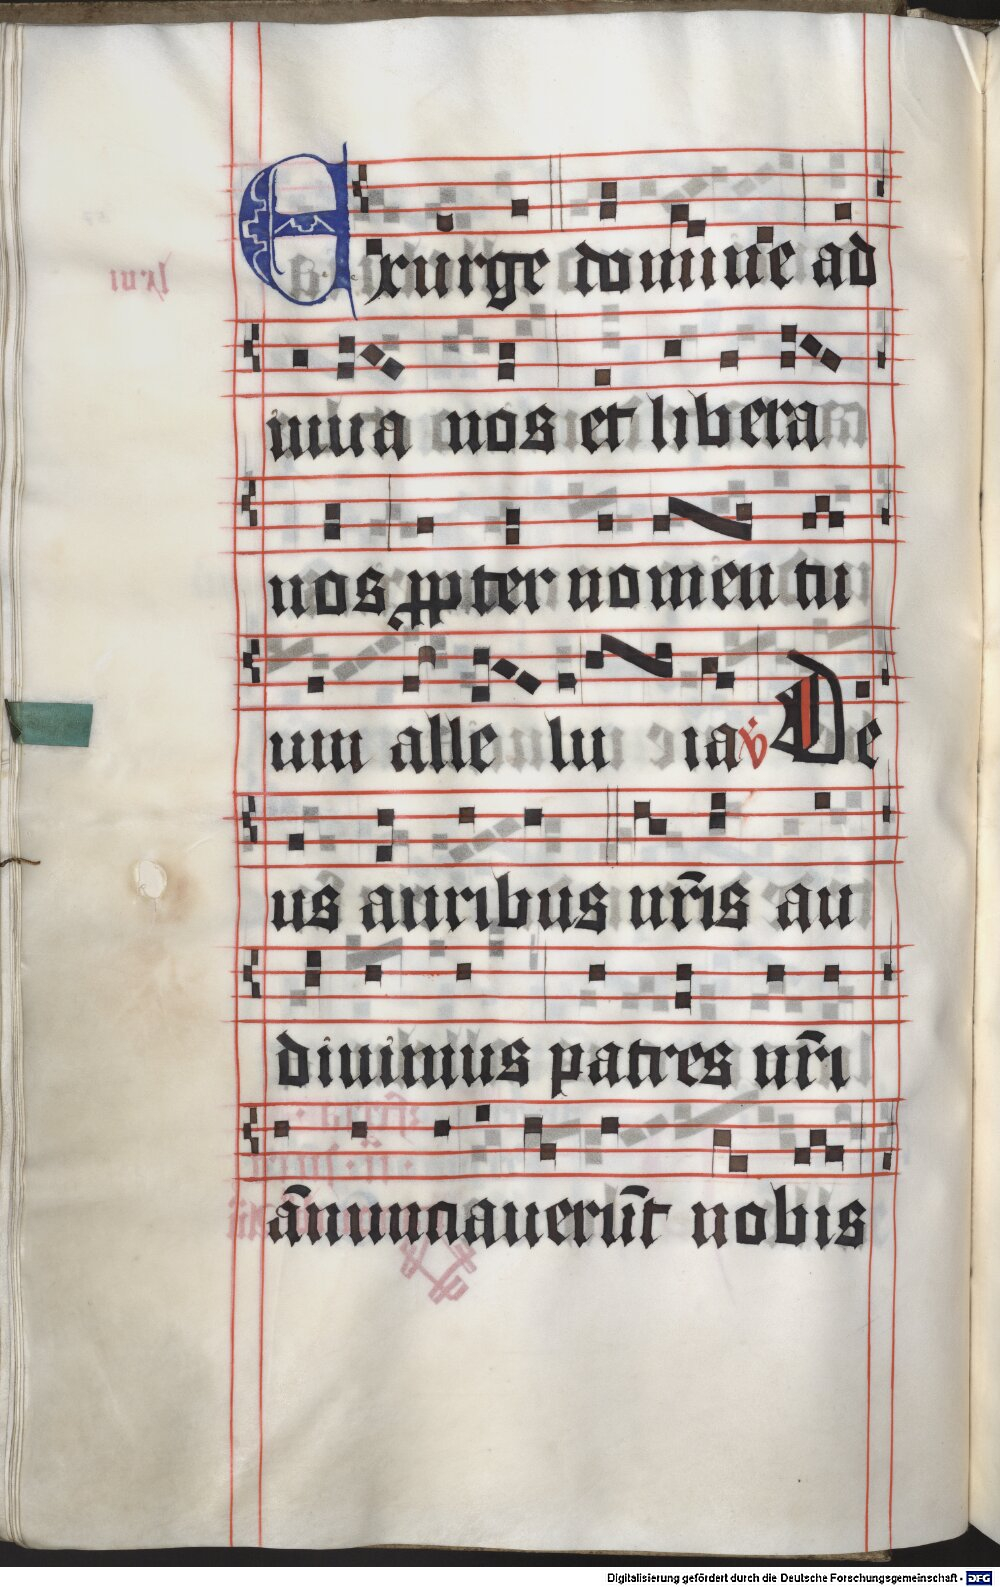 Exurge domine ad
iuua nos et libera
nos ꝓpter nomen tu
um alle lu ia v̇ De
us auribus nr̄is au
diuimus patres nr̄i
ān̄unciauerūt nobis
Digitalisierung gefördert durch die Deutsche Forschungsgemeinschaft - DFG